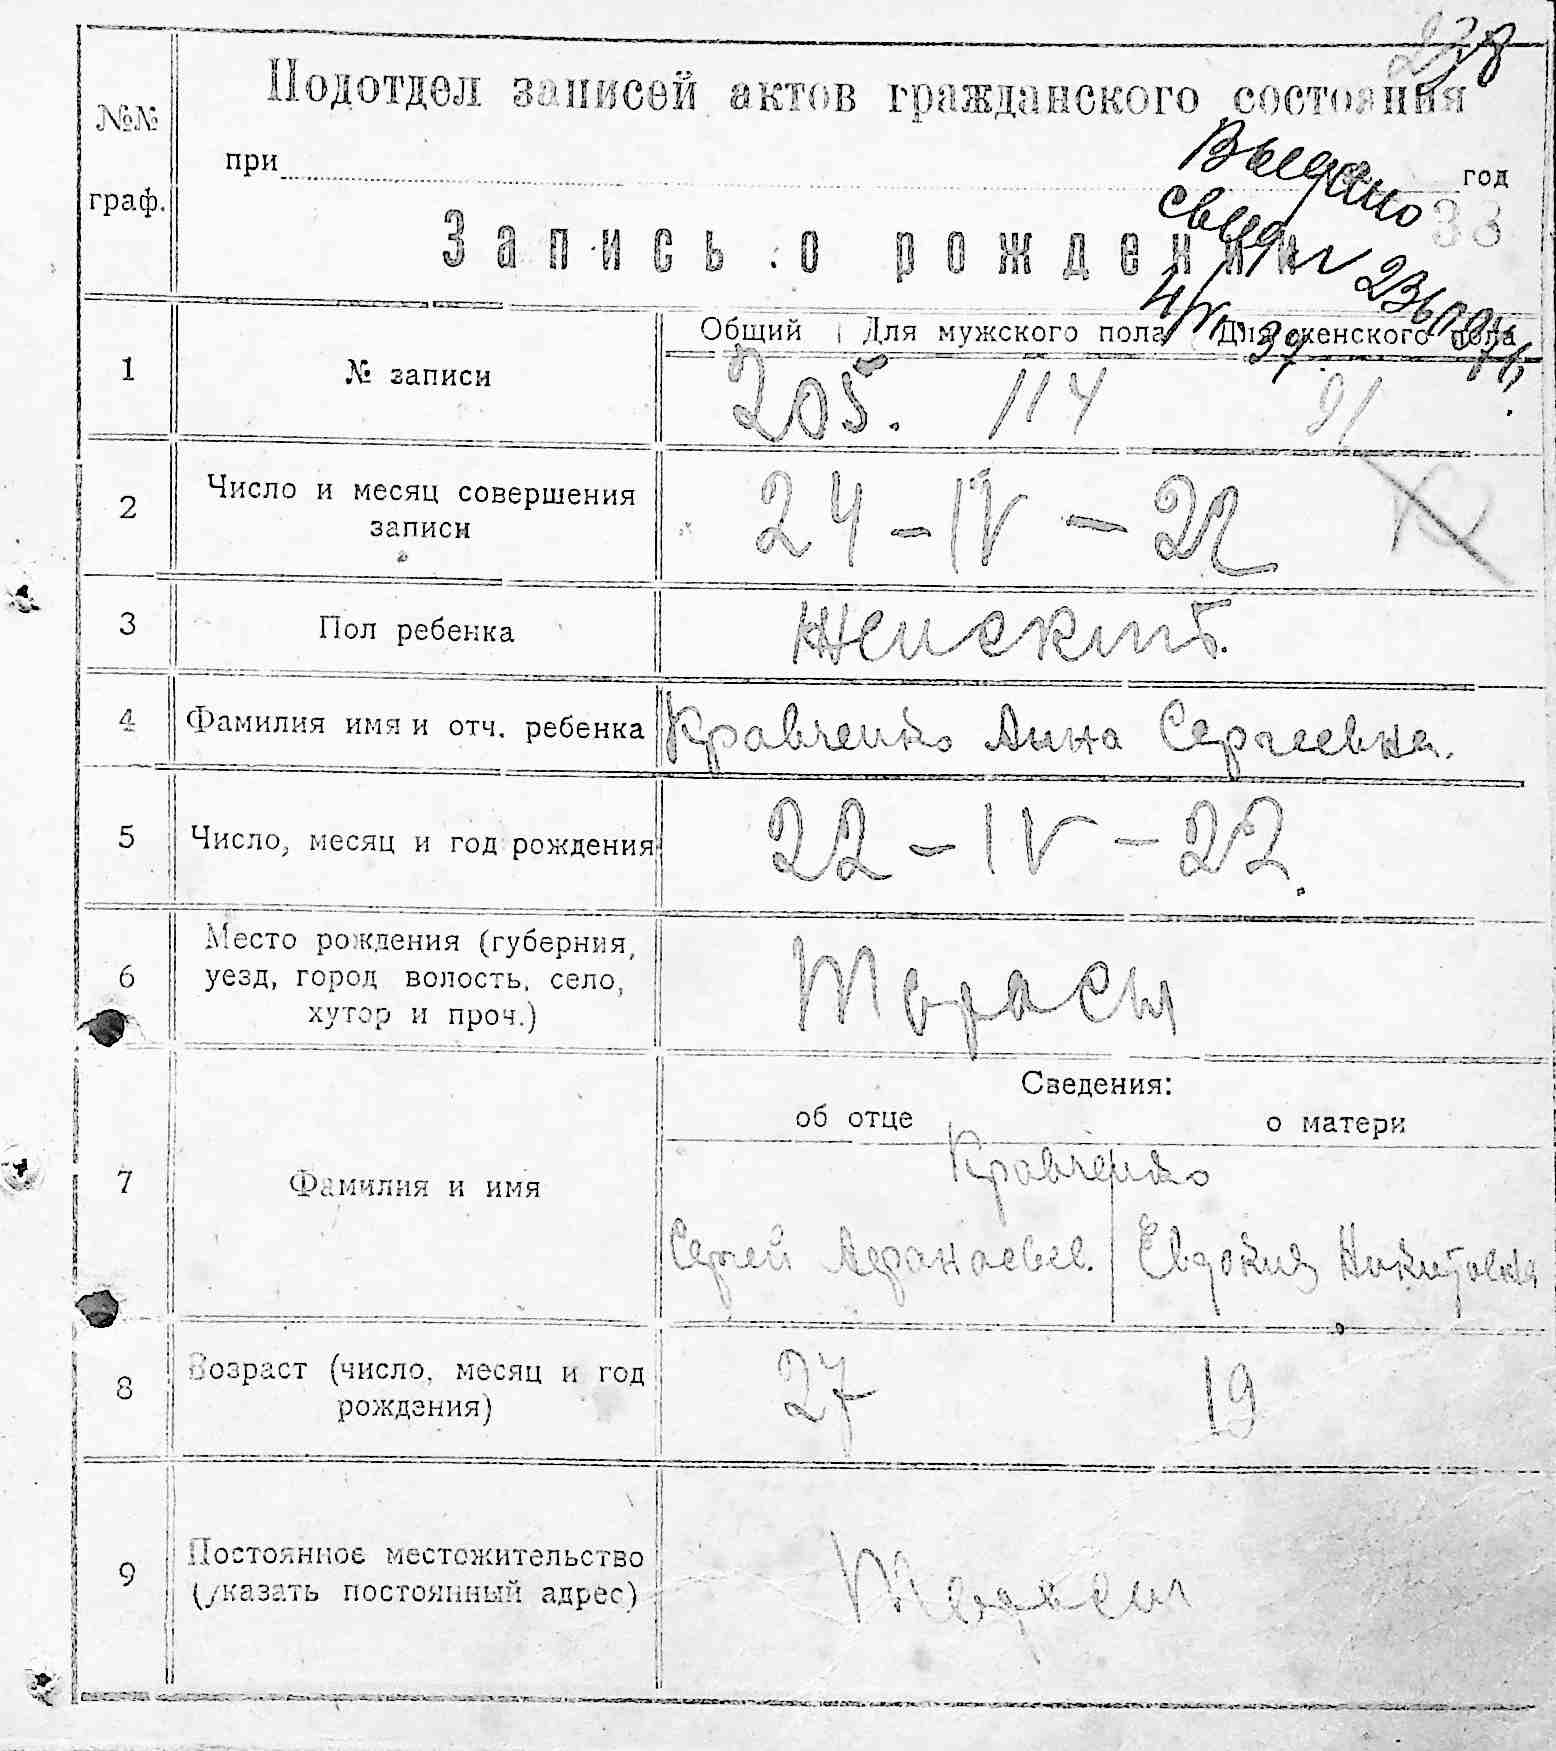 238
№№ граф.
Подотдел записей актов гражданского состояния
при год
Выдано
33
Запись о рождении
Общий Для мужского пола Для женского пола
1 № записи 205. 114 91
2 Число и месяц совершения
записи
24-IV-22
3 Пол ребенка Женский.
4 Фамилия имя и отч. ребенка Кравченко Анна Сергеевна.
5 Число, месяц и год рождения 22-IV-22.
6 Место рождения (губерния,
уезд, город волость, село,
хутор и проч.)
Тарасы
Сведения:
об отце о матери
7 Фамилия и имя
Кравченко
Сергей Афанасьев. Евдокия Никитовна
8 Возраст (число, месяц и год
рождения)
27 19
9 Постоянное местожительство
(указать постоянный адрес)
Тарасы